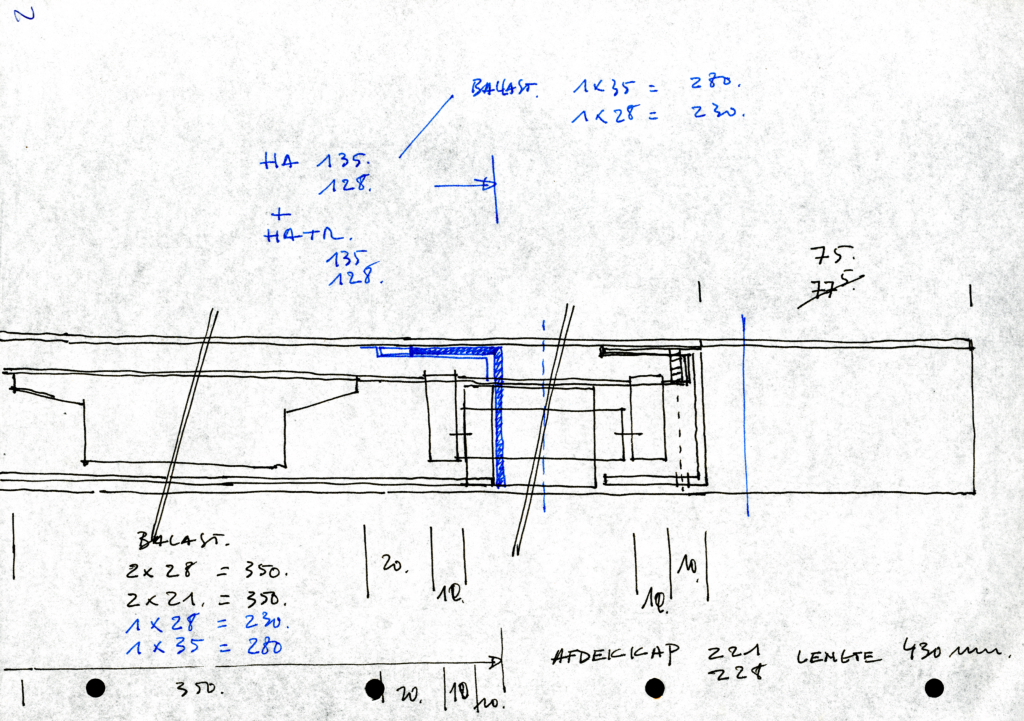 2
BALLAST. 1x35 = 280.
1x28 = 230.
HA 135.
128.
+
HATR.
135
128.
75.
77⁵.
BALAST.
2x28 = 350.
2x21. = 350.
1x28 = 230.
1x35 = 280
20.
10.
10.
10.
AFDEKKAP 221 LENGTE 430 mm.
228
350.
20.
10
10.